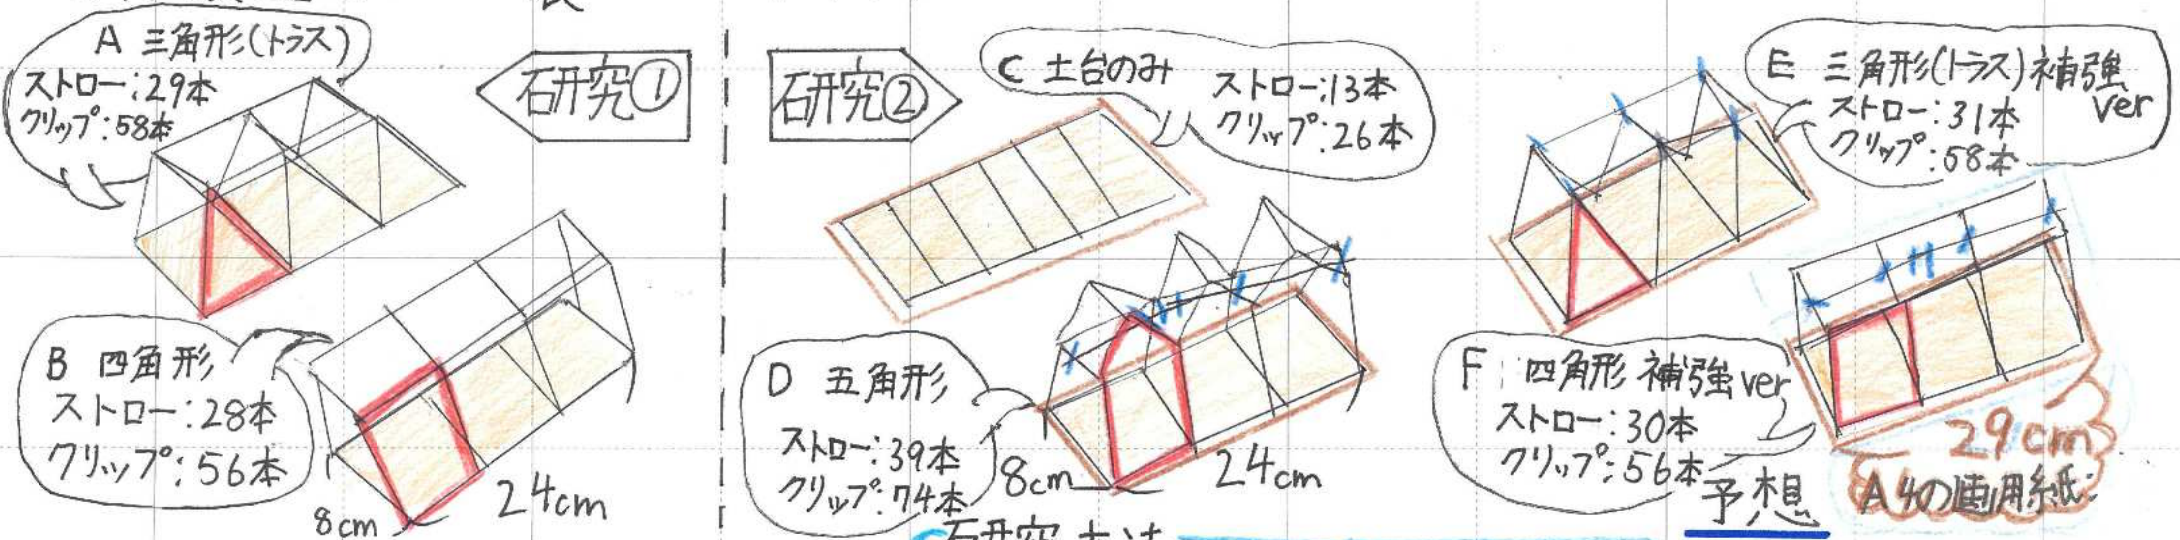 A 三角形(トラス)
ストロー:29本
クリップ:58本
研究①
B 四角形
ストロー:28本
クリップ:56本
8cm
24cm
研究②
C 土台のみ
ストロー:13本
クリップ:26本
D 五角形
ストロー:39本
クリップ:74本
8cm
24cm
E 三角形(トラス)補強
ver
ストロー:31本
クリップ:58本
F 四角形 補強ver
ストロー:30本
クリップ:56本
29cm
A4の画用紙
予想